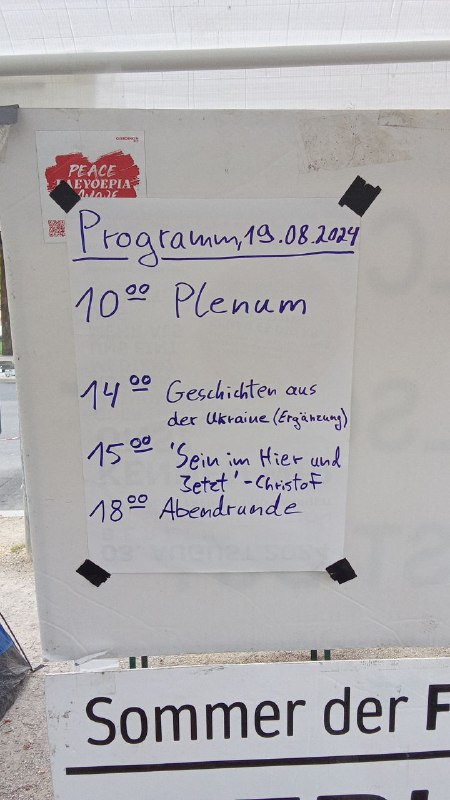 PEACE
ΕΛΕΥΘΕΡΙΑ
Programm, 19.08.2024
10⁰⁰ Plenum
14⁰⁰ Geschichten aus
der Ukraine (Ergänzung)
15⁰⁰ 'Sein im Hier und
Jetzt' - Christof
18⁰⁰ Abendrunde
Sommer der F